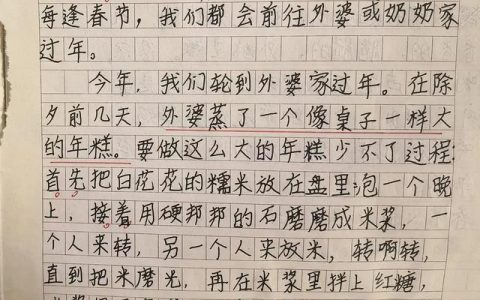 每逢春节，我们都会前往外婆或奶奶家
过年。
今年，我们轮到外婆家过年。在除
夕前几天，外婆蒸了一个像桌子一样大
的年糕。要做这么大的年糕少不了过程:
首先把白花花的糯米放在盘里泡一个晚
上，接着用硬邦邦的石磨磨成米浆，一
个人来转，另一个人来放米，转啊转，
直到把米磨光，再在米浆里拌上红糖，